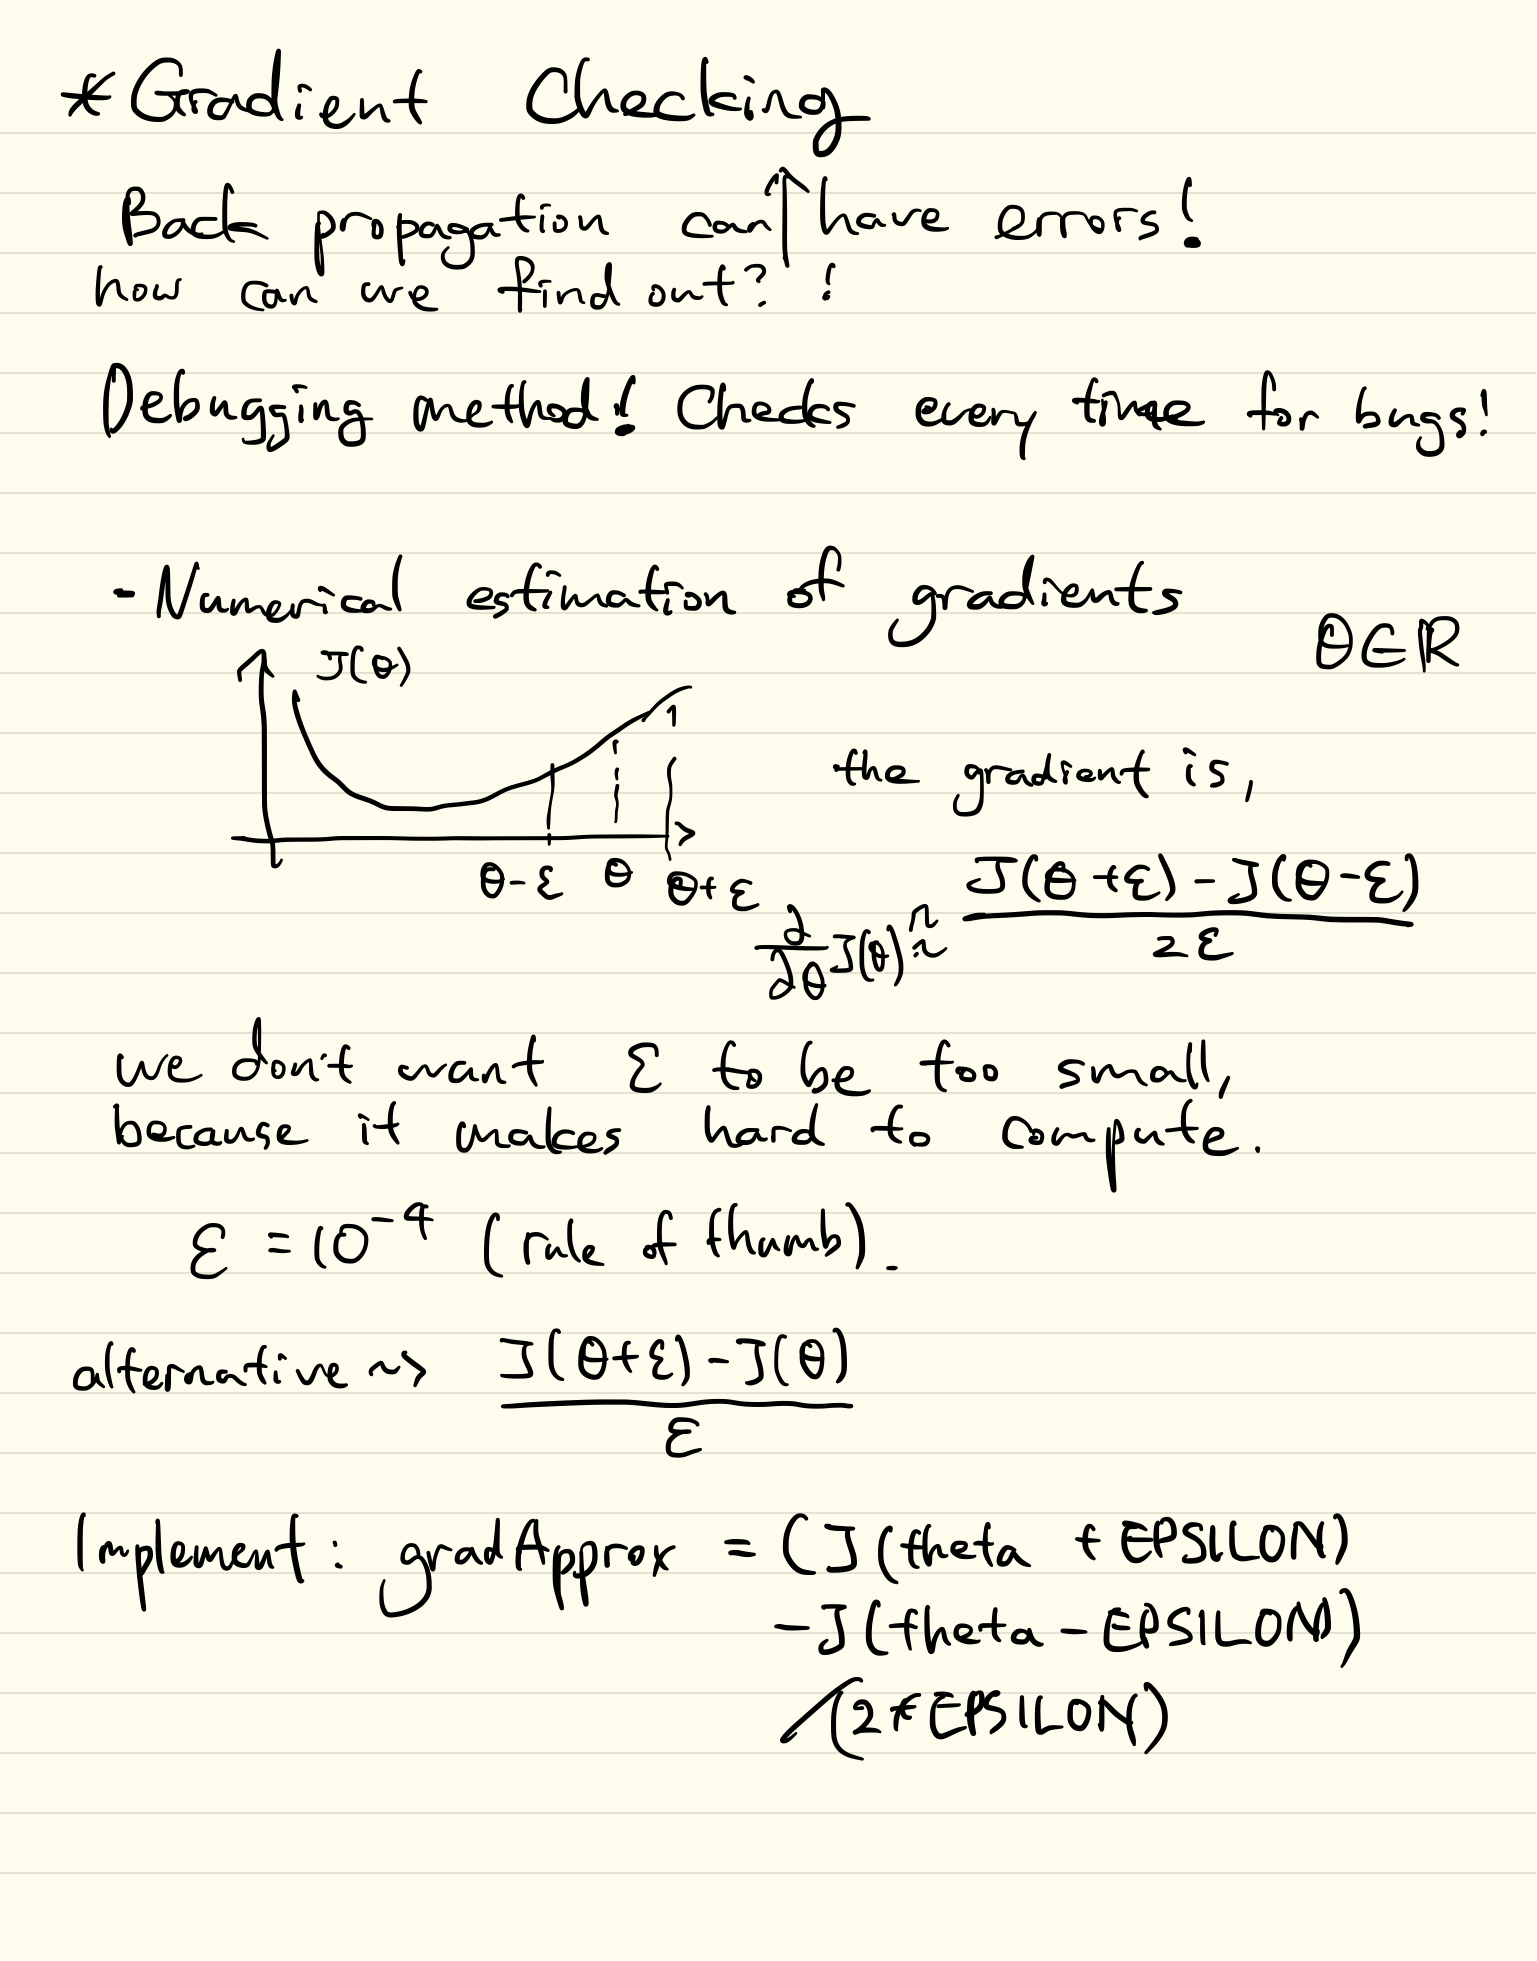 * Gradient Checking
Back propagation can ↑ have errors!
how can we find out? !
Debugging method! Checks every time for bugs!
- Numerical estimation of gradients
θ ∈ ℝ
J(θ)
the gradient is,
θ-ε θ θ+ε
∂/∂θ J(θ) ≈ (J(θ+ε) - J(θ-ε)) / 2ε
we don't want ε to be too small,
because it makes hard to compute.
ε = 10^-4 (rule of thumb).
alternative ~> (J(θ+ε) - J(θ)) / ε
Implement: gradApprox = (J(theta + EPSILON)
- J(theta - EPSILON))
/(2*EPSILON)